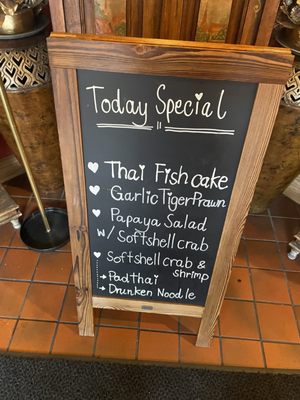 Today Special
Thai Fishcake
Garlic Tiger Prawn
Papaya Salad
w/ Softshell crab
Softshell crab &
shrimp
Padthai
Drunken Noodle